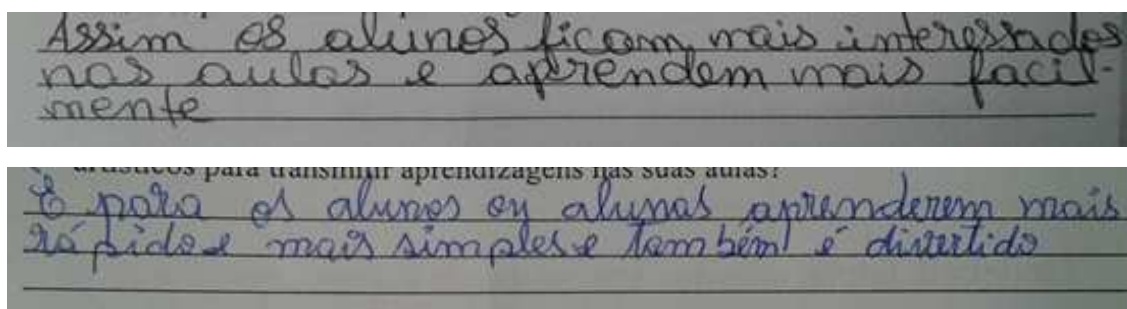 Assim os alunos ficam mais interessados
nas aulas e aprendem mais facil-
mente
artísticos para transmitir aprendizagens nas suas aulas?
É para os alunos ou alunas aprenderem mais
rápido e mais simples e também é divertido